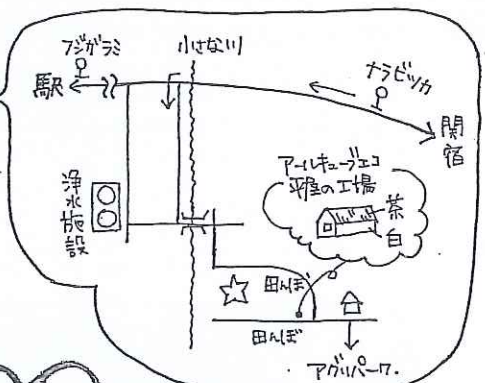 フジガラミ
小さな川
駅
ナラビツカ
関宿
浄水施設
アールキューブエコ
平屋の工場
茶
白
田んぼ
田んぼ
アグリパーク.